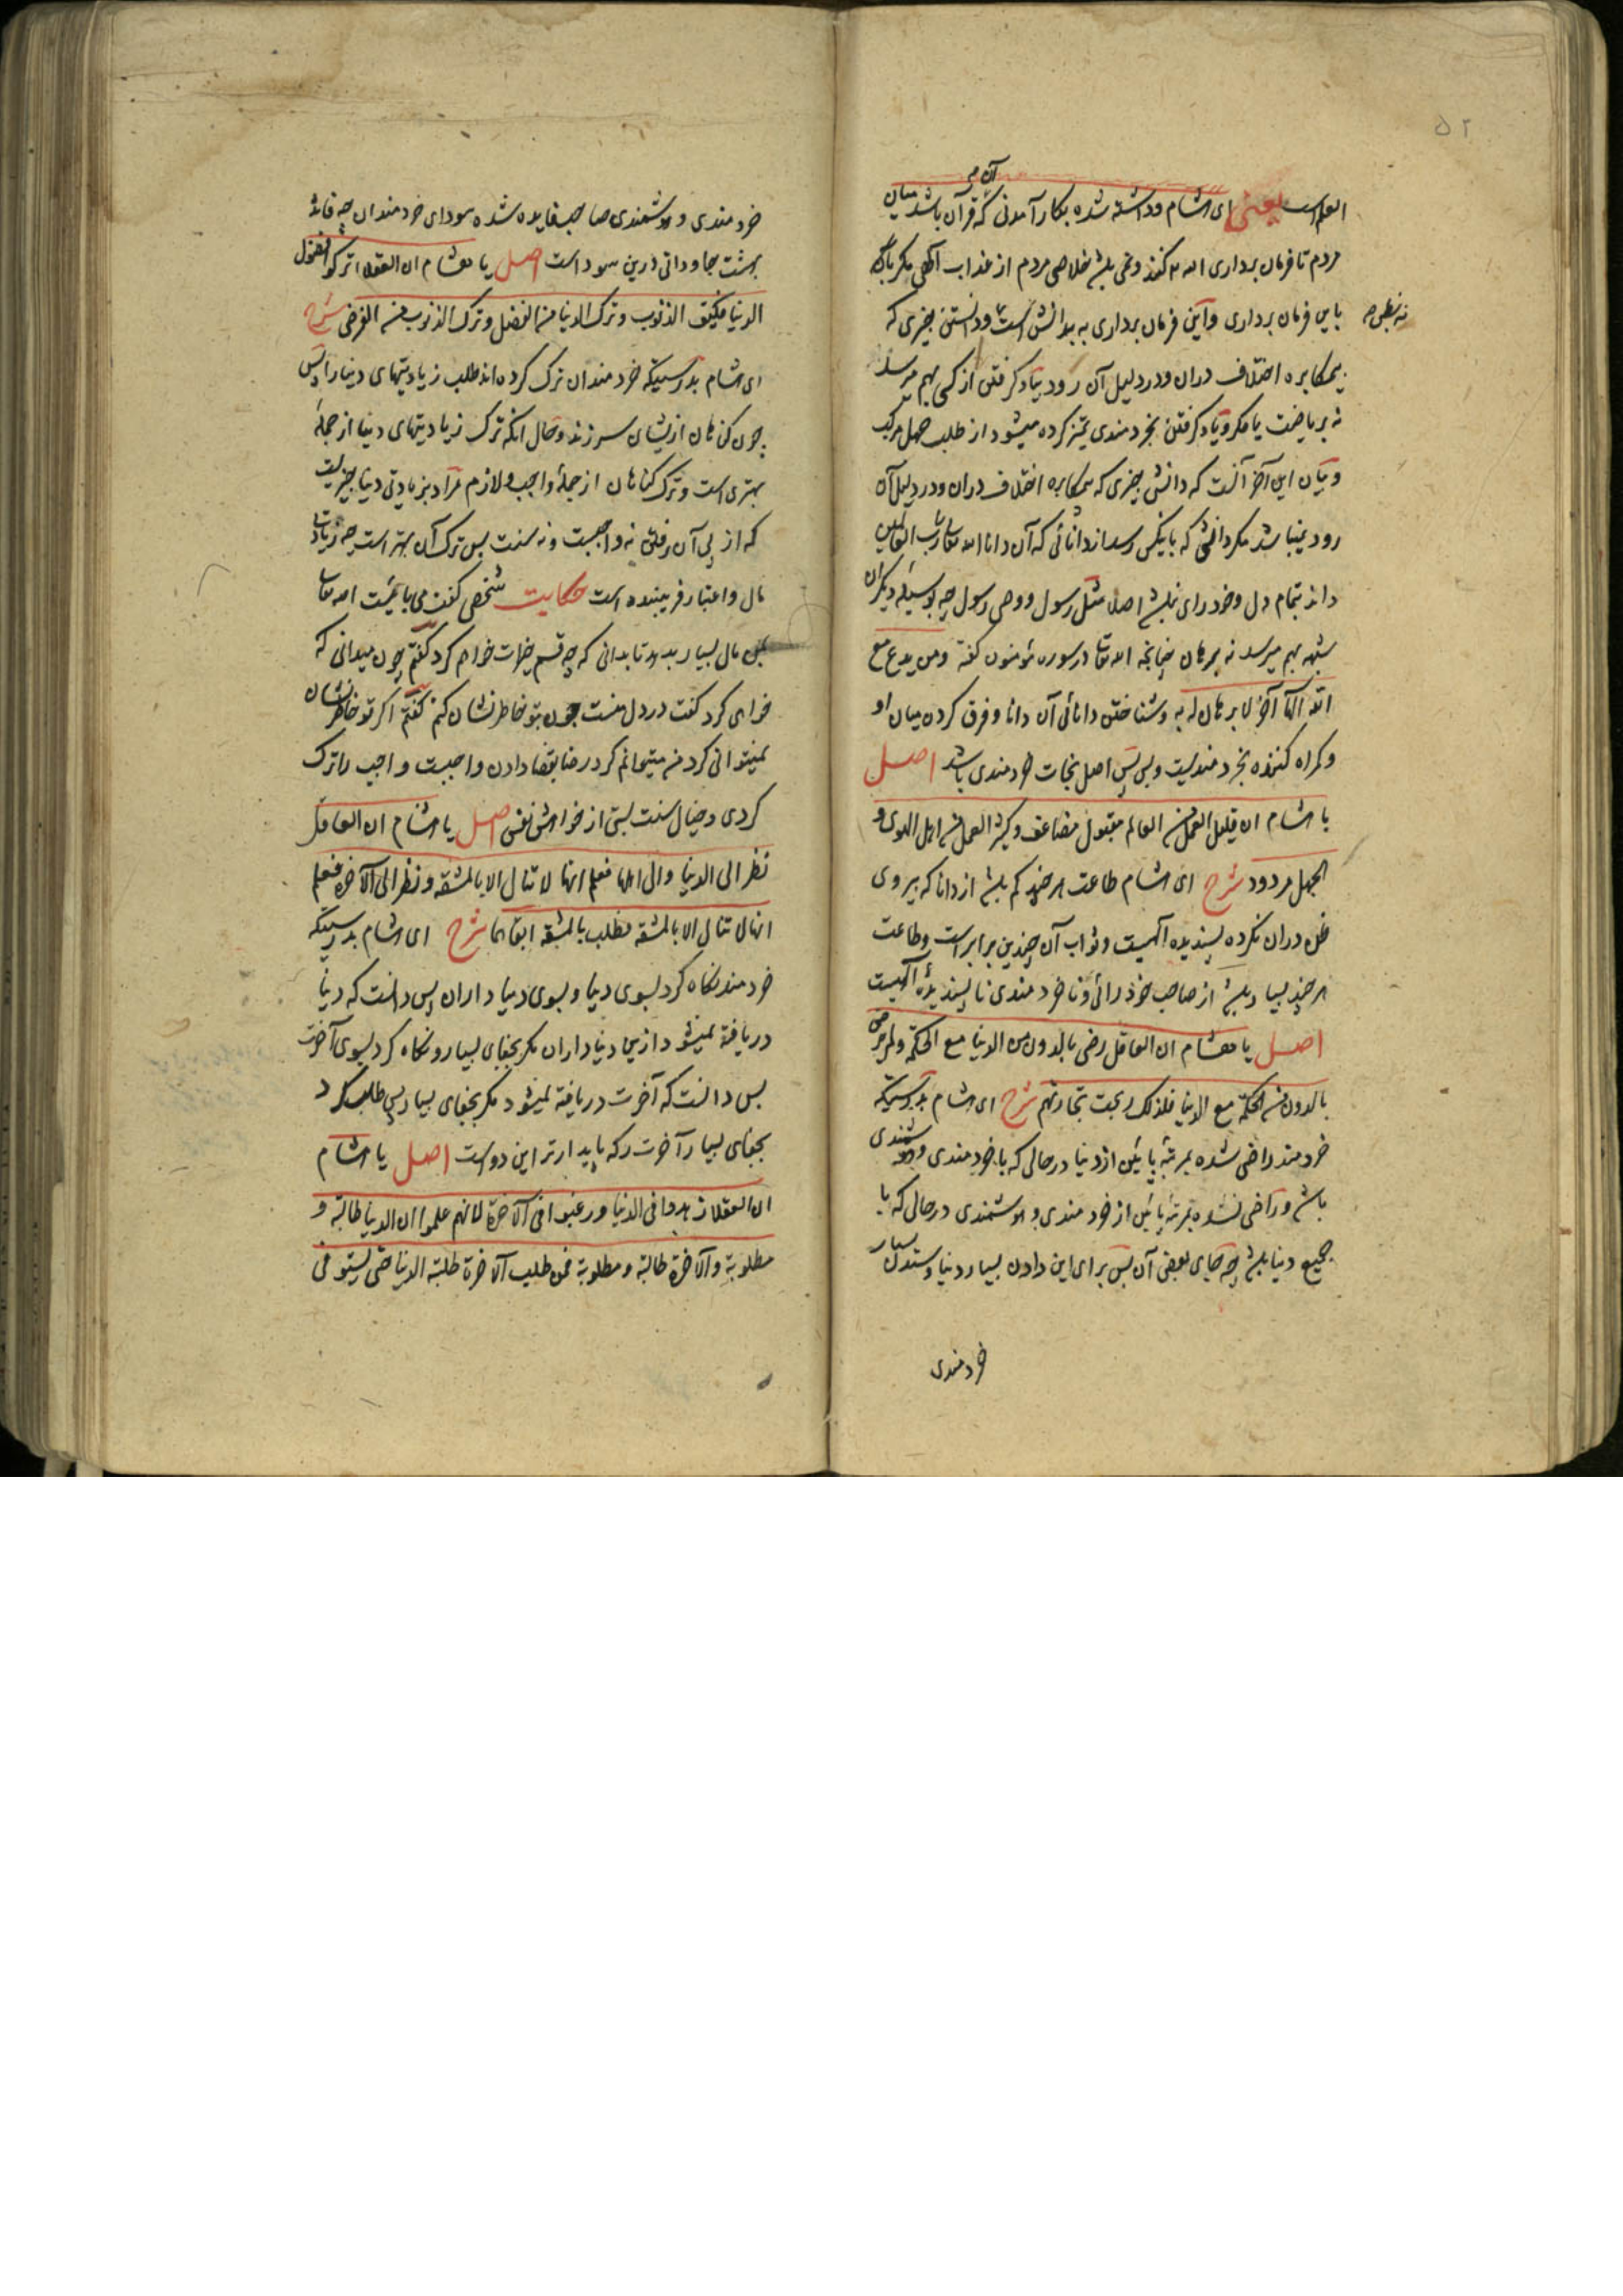 ۵۲
آن
العلم است یعنی ای هشام وداشته شده بکار آمدنی که قرآن باشد میان
مردم تا فرمان برداری الله کنند ونمی باشد خلاصی مردم از عذاب الهی مکر بآن
باین فرمان برداری واین فرمان برداری به دانش است ودانستن چیزی که
نه بظن
بیمکابره اختلاف دران ودر دلیل آن رود بیاد کرفتن از کسی بهم میرسد
نه بریاضت یا مکر ویاد کرفتن بخردمندی تمیز کرده میشود از طلب جهل مرکب
وبیان این آخر آنست که دانش چیزی که بیمکابره اختلاف دران ودر دلیل آن
رود نمیباشد مکر دانشی که بآنکس رسد از دانائی که آن دانا الله تعالی رب العالمین
داند بتمام دل وخودرای نباشد اصلا مثل رسول ووصی رسول چه بوسیله دیکران
شبهه بهم میرسد نه برهان چنانچه الله تعالی درسوره مؤمنون کفته ومن یدع مع
الله الها آخر لا برهان له به وشناختن دانائی آن دانا وفرق کردن میان او
وکمراه کننده بخردمندیست وبس پس اصل نجات خردمندی باشد اصل
یا هشام ان قلیل العمل من العالم مقبول مضاعف وکثیر العمل من اهل الهوی و
الجهل مردود شرح ای هشام طاعت هرچند کم باشد از دانا که پیروی
ظن دران نکرده پسندیده الهیست وثواب آن چندین برابر است وطاعت
هرچند بسیار باشد از صاحب خودرائی وناخردمندی ناپسندیده الهیست
اصل یا هشام ان العاقل رضی بالدون من الدنیا مع الحکمة ولم یرض
بالدون من الحکمة مع الدنیا فلذلک ربحت تجارتهم شرح ای هشام بدرستیکه
خردمند راضی شده بمرتبه پائین از دنیا درحالی که با خردمندی وهوشمندی
باشد وراضی نشده بمرتبه پائین از خردمندی وهوشمندی درحالی که با
جمیع دنیا باشد چه جای بعضی آن پس برای این دادن بسیار دنیا وستدن بسیار
خردمندی
خردمندی وهوشمندی صاحب فایده شده سودای خردمندان چه فایده
بهشت جاودانی درین سود است اصل یا هشام ان العقلا ترکوا فضول
الدنیا فکیف الذنوب وترک الدنیا من الفضل وترک الذنوب من الفرض شرح
ای هشام بدرستیکه خردمندان ترک کرده اند طلب زیادتیهای دنیا را پس
چون کناهان ازیشان سر زند وحال آنکه ترک زیادتیهای دنیا از جمله
بهتری است وترک کناهان از جمله واجب ولازم مراد بزیادتی دنیا چیزیست
که از پی آن رفتن نه واجبست ونه سنت پس ترک آن بهتر است چه زیادتی
مال واعتبار فریبنده است حکایت شخصی کفت می بایست الله تعالی
بمن مال بسیار بدهد تا بدانی که چه قسم خیرات خواهم کرد کفتم چون میدانی که
خواهی کرد کفت در دل منست چون بتو خاطر نشان کنم کفتم اکر تو خاطر نشان
نمیتوانی کرد من میتوانم کرد رضا بقضا دادن واجبست واجب را ترک
کردی وخیال سنت بستی از خواهش نفس اصل یا هشام ان العاقل
نظر الی الدنیا والی اهلها فعلم انها لا تنال الا بالمشقة ونظر الی الآخرة فعلم
انها لا تنال الا بالمشقة فطلب بالمشقة ابقاهما شرح ای هشام بدرستیکه
خردمند نکاه کرد بسوی دنیا وبسوی دنیاداران پس دانست که دنیا
دریافته نمیشود ازین دنیاداران مکر بجفای بسیار ونکاه کرد بسوی آخرت
پس دانست که آخرت دریافته نمیشود مکر بجفای بسیار پس طلب کرد
بجفای بسیار آخرت را که پایدارتر این دو است اصل یا هشام
ان العقلا زهدوا فی الدنیا ورغبوا فی الآخرة لانهم علموا ان الدنیا طالبة و
مطلوبة والآخرة طالبة ومطلوبة فمن طلب الآخرة طلبته الدنیا حتی یستوفی